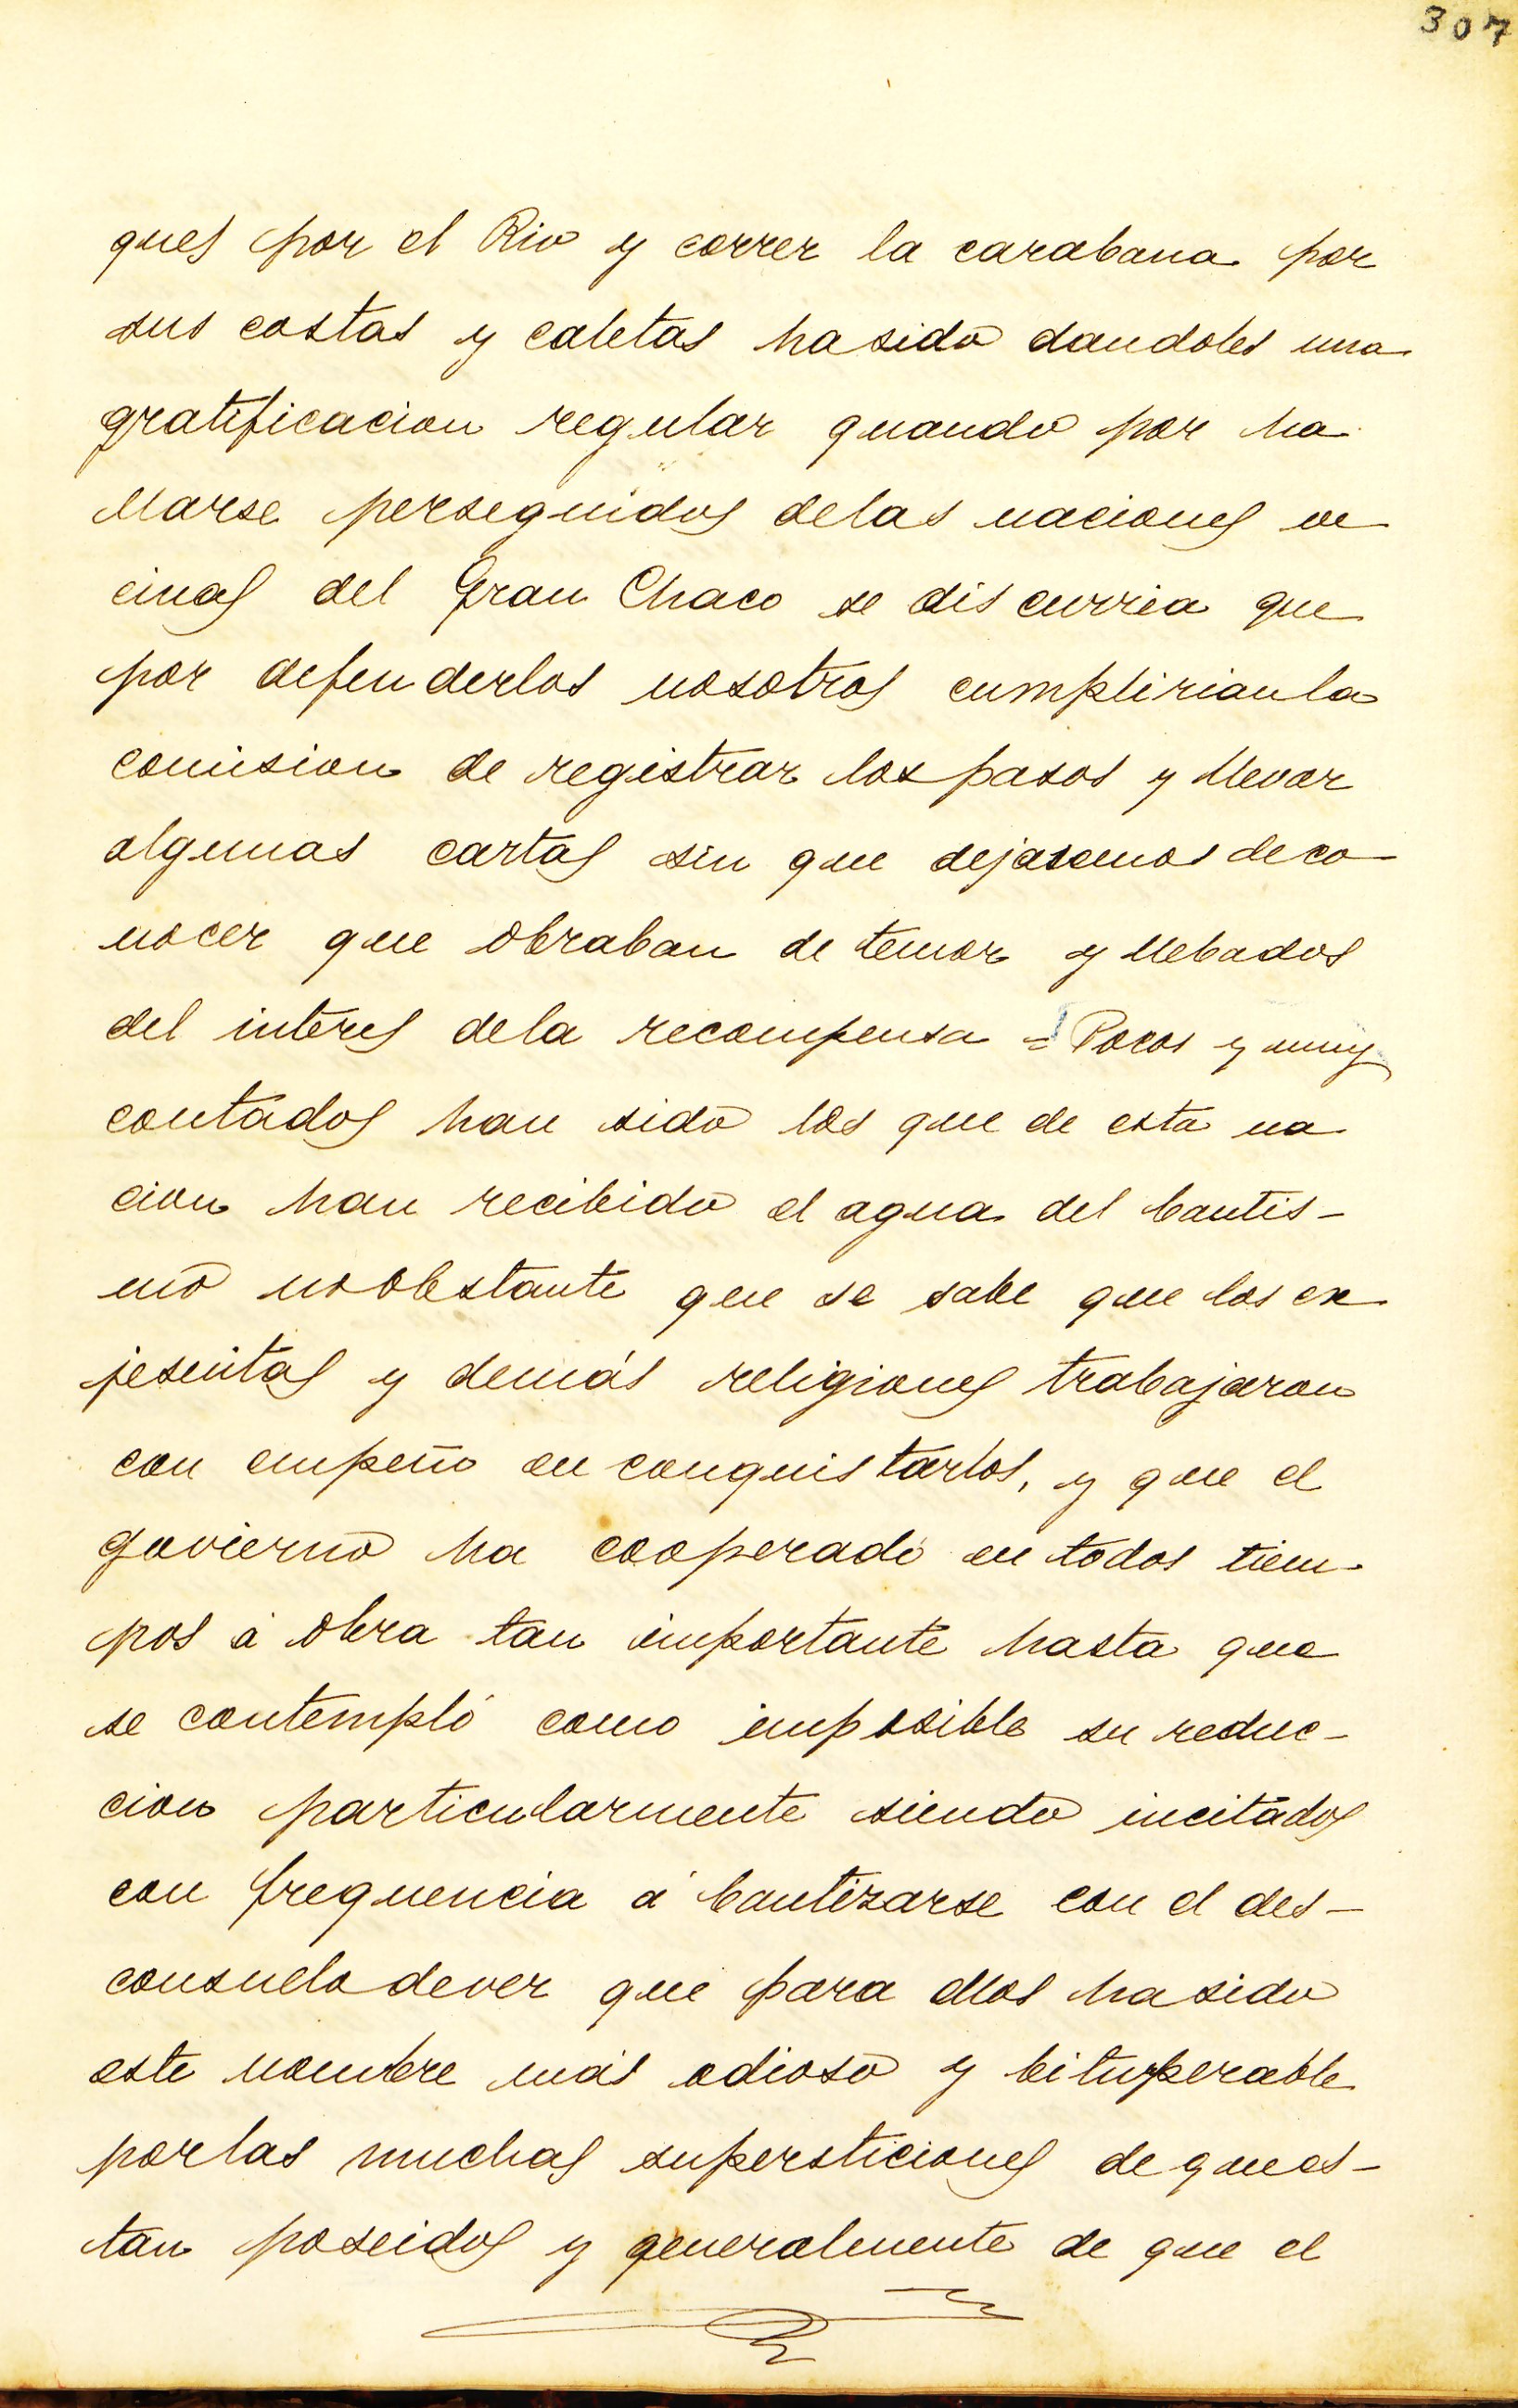 307
ques por el Rio y correr la carabana por
sus costas y caletas ha sido dandoles una
gratificacion regular quando por ha
llarse perseguidos delas naciones ve
cinas del Gran Chaco se dis curria que
por defen derlos nosotros cumplirian la
comision de registrar los pasos y llevar
algunas cartas sin que dejasemos de co-
nocer que obraban de temor y llebados
del interes dela recompensa = Pocos y muy
contados han sido los que de esta na
cion han recibido el agua del bautis-
mo no obstante que se sabe que los ex
jesuitas y demás religiones trabajaron
con empeño en conquis tarlos, y que el
govierno ha cooperado en todos tiem-
pos á obra tan importante hasta que
se contempló como imposible su reduc-
cion particularmente siendo incitados
con frequencia á bautizarse con el des-
consuelo de ver que para ellos ha sido
este nombre más odioso y bituperable
por las muchas supersticiones de que es-
tan poseidos y generalmente de que el